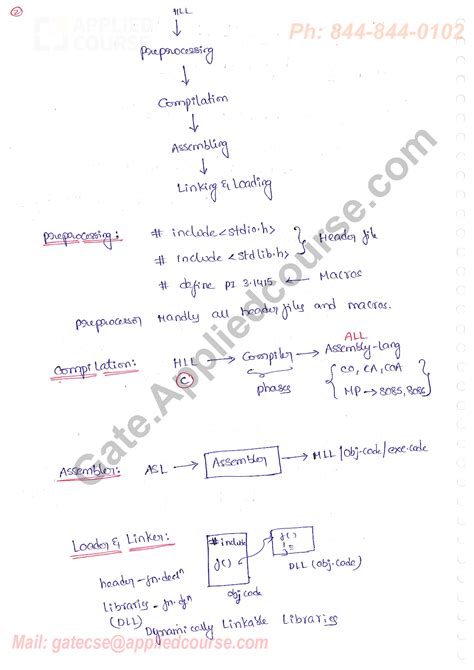 2
APPLIED
COURSE
Ph: 844-844-0102
HLL
Preprocessing
Compilation
Assembling
Linking & Loading
Preprocessing:
# include <stdio.h>
# include <stdlib.h>
Header file
# define PI 3.1415 ← Macros
Preprocessor Handly all header files and macros.
Compilation: HLL → Compiler → Assembly-lang
ALL
C
phases
CO, CA, COA
MP → 8085, 8086
Assembler: ASL → Assembler → MLL/obj-code/exe.code
Loader & Linker:
# include
f()
obj code
f()
DLL (obj-code)
header - fn. decln
libraries - fn. dfn
(DLL)
Dynamically Linkable Libraries
Gate.Appliedcourse.com
Mail: gatecse@appliedcourse.com